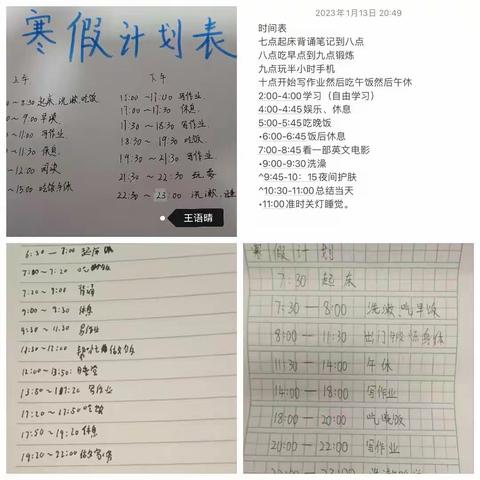 寒假计划表
上午
下午
8:30 起床、洗漱、吃饭
9:00 早读
11:00 写作业
11:30 休息
12:00 阅读
15:00 吃饭午休
17:30 休息
17:30 — 18:30 写作业
18:30 — 19:30 吃饭
19:30 — 21:30 写作业
21:30 — 22:30 玩耍
22:30 — 23:00 洗漱、睡
王语晴
2023年1月13日 20:49
时间表
七点起床背诵笔记到八点
八点吃早点到九点锻炼
九点玩半小时手机
十点开始写作业然后吃午饭然后午休
2:00-4:00学习（自由学习）
4:00-4:45娱乐、休息
5:00-5:45吃晚饭
•6:00-6:45饭后休息
7:00-8:45看一部英文电影
•9:00-9:30洗澡
^9:45-10：15夜间护肤
^10:30-11:00总结当天
•11:00准时关灯睡觉。
6:30 — 7:00 起床
7:00 — 7:20 吃饭
7:20 — 9:00 背诵
9:00 — 9:30 休息
9:30 — 11:30 写作业
11:30 — 12:00
12:00 — 13:50 睡觉
写作业
17:20 — 17:50 吃饭
17:50 — 19:20 休息
19:20 — 22:00 做家务
寒假计划
7:30 起床
7:30 — 8:00 洗漱、吃早饭
8:00 — 11:30 出门锻炼身体
11:30 — 14:00 午休
14:00 — 18:00 写作业
18:00 — 20:00 吃晚饭
20:00 — 22:00 写作业